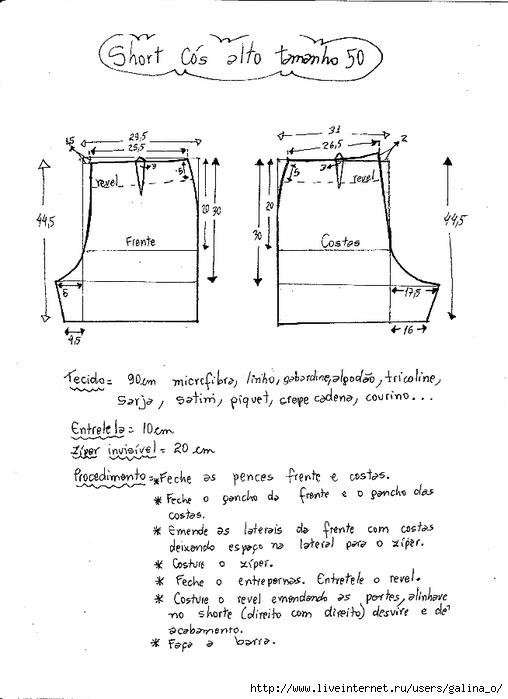 Short Cós alto tamanho 50
1,5
29,5
25,5
3
5
revel
20
30
44,5
Frente
6
4,5
31
26,5
2
5
3
revel
20
30
44,5
Costas
17,5
16
Tecido = 90cm microfibra, linho, gabardine, algodão, tricoline,
sarja, setim, piquet, crepe cadena, courino...
Entretela = 10cm
Zíper invisível = 20 cm
Procedimento = * Feche as pences frente e costas.
* Feche o gancho da frente e o gancho das
costas.
* Emende as laterais da frente com costas
deixando espaço na lateral para o zíper.
* Costure o zíper.
* Feche o entrepernas. Entretele o revel.
* Costure o revel emendando as partes, alinhave
no shorte (direito com direito) desvire e dê
acabamento.
* Faça a barra.
http://www.liveinternet.ru/users/galina_o/